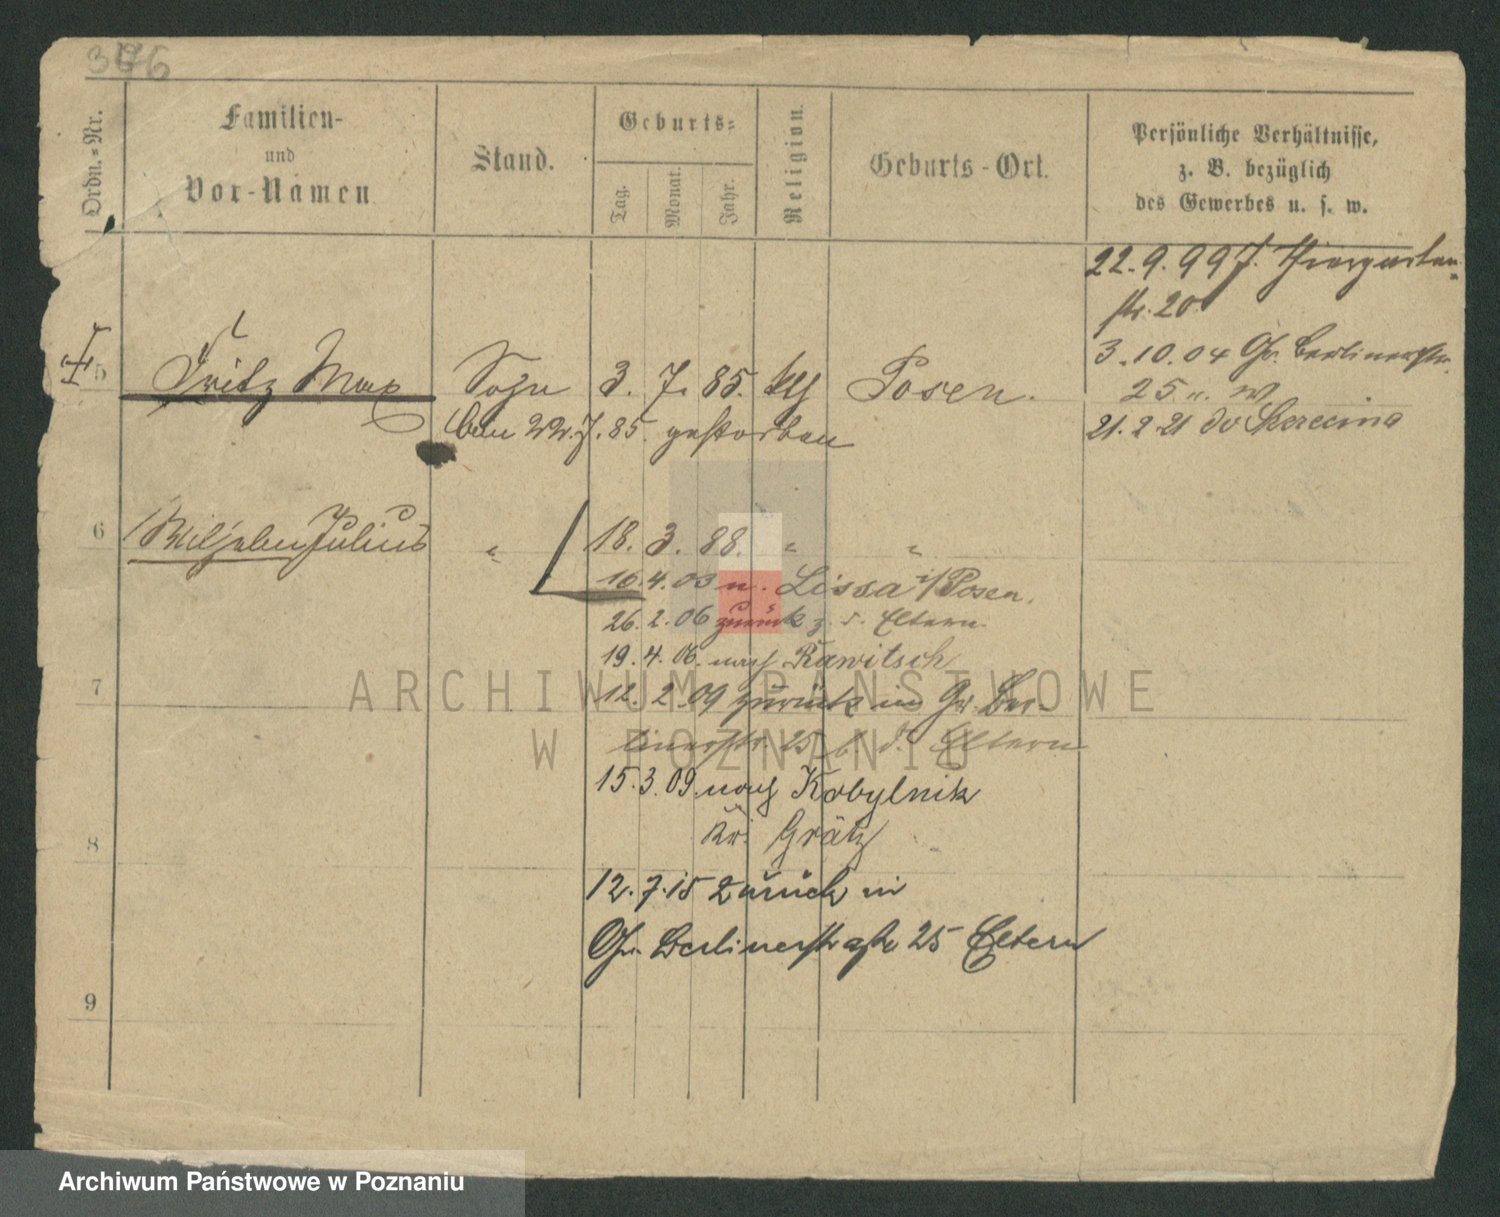 376
Ordn.-Nr.
Familien-
und
Vor-Namen
Stand.
Geburts-
Tag.
Monat.
Jahr.
Religion.
Geburts-Ort.
Persönliche Verhältnisse,
z. B. bezüglich
des Gewerbes u. s. w.
22.9.99 Thiergarten-
str. 20
3.10.04 Gr. Berlinerstr.
25
21.2.21
5 Fritz Max Sohn 3. 7. 85. Posen.
22.7.85. gestorben
6 Wilhelm Julius " 18. 3. 88. " "
10.4.03 n. Lissa i/Posen.
26.2.06 zurück z. s. Eltern
19.4.06. nach Rawitsch
7
12.2.09 zurück in Gr. Ber-
linerstr. 25 b. d. Eltern
15.3.09. nach Kobylnik
8
Kr. Grätz
12.7.15 zurück in
Gr. Berlinerstraße 25 Eltern
9
ARCHIWUM PAŃSTWOWE
W POZNANIU
Archiwum Państwowe w Poznaniu